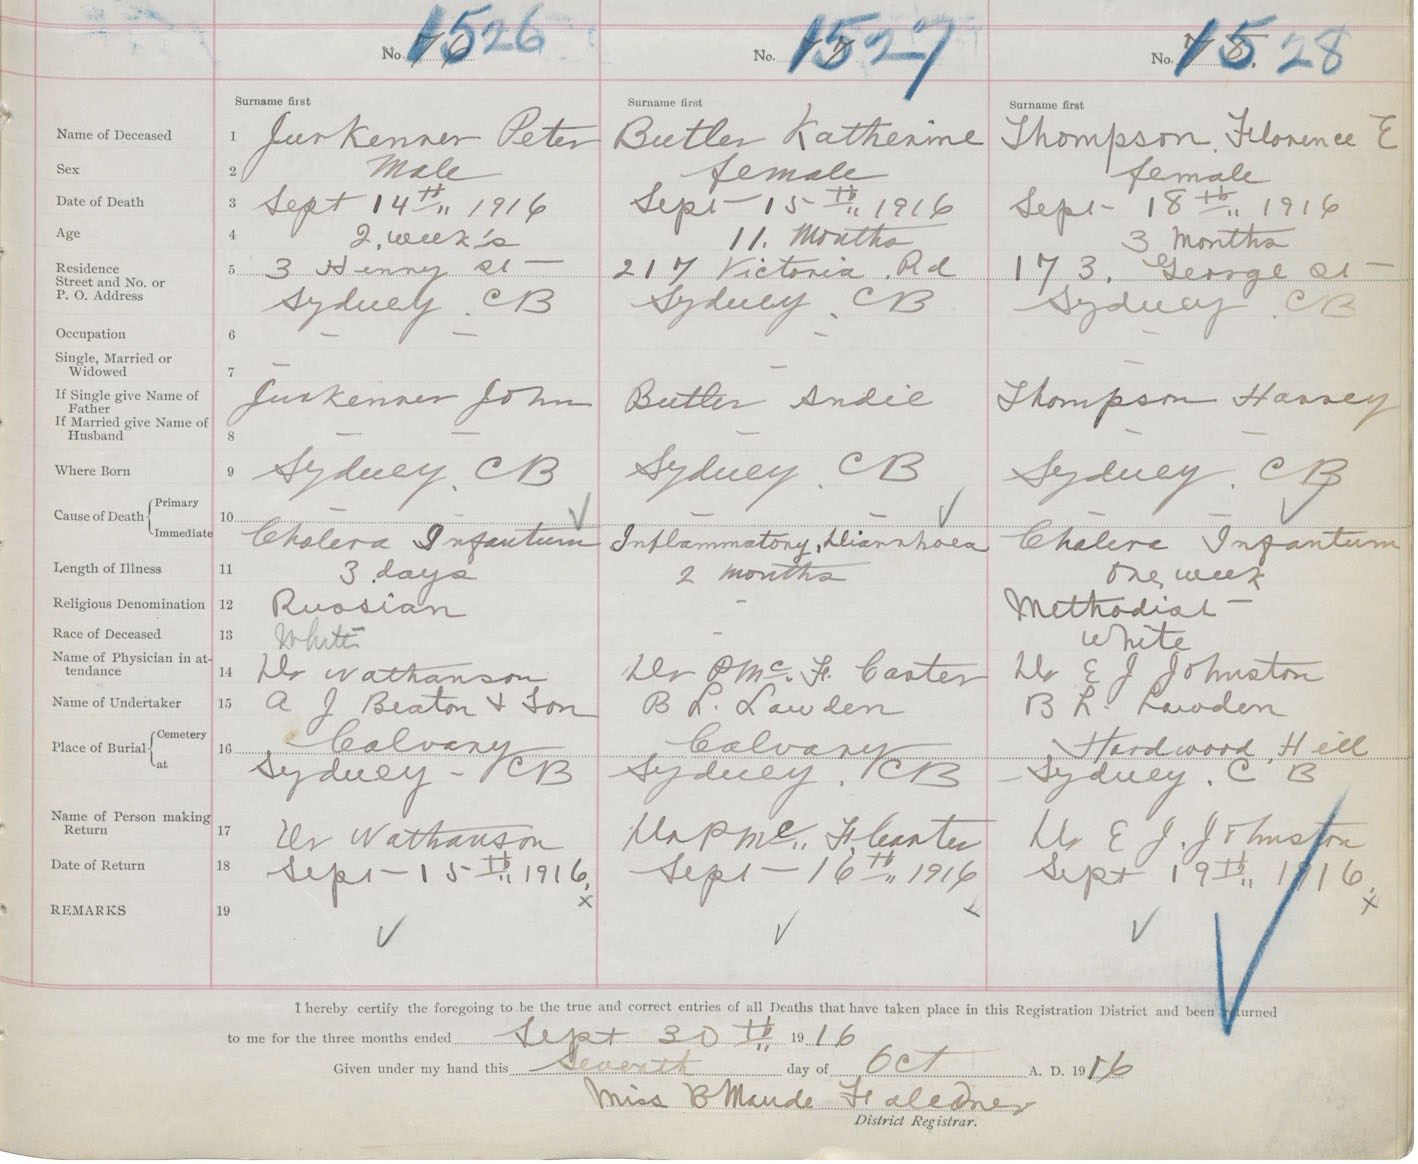 No. 76 1526 No. 77 1527 No. 78. 1528
Surname first Surname first Surname first
Name of Deceased 1 Jurkenner Peter Butler Katherine Thompson, Florence E
Sex 2 Male female female
Date of Death 3 Sept 14th 1916 Sept 15th 1916 Sept 18th 1916
Age 4 2, week's 11. Months 3 Months
Residence 5 3 Henry St 217 Victoria Rd 173. George St
Street and No. or
P. O. Address Sydney. CB Sydney. CB Sydney. CB
Occupation 6 – – – –
Single, Married or
Widowed 7 – – –
If Single give Name of Jurkenner John Butler Andie Thompson Harvey
Father
If Married give Name of
Husband 8 – – – – –
Where Born 9 Sydney. CB Sydney. CB Sydney. CB
Cause of Death { Primary 10 – – – – – –
Immediate Cholera Infantum Inflammatory, Diarrhoea Cholera Infantum
Length of Illness 11 3 days 2 months one, week
Religious Denomination 12 Russian – Methodist
Race of Deceased 13 White – White
Name of Physician in at-
tendance 14 Dr Nathanson Dr P Mc. F. Carter Dr E J Johnston
Name of Undertaker 15 A J Beaton & Son B L. Lawden B L. Lawden
Place of Burial { Cemetery 16 Calvary Calvary Hardwood Hill
at Sydney - CB Sydney. CB Sydney. C B
Name of Person making
Return 17 Dr Nathanson Dr P Mc. F. Carter Dr E J. Johnston
Date of Return 18 Sept 15th 1916. Sept 16th 1916 Sept 19th 1916.
x x x
REMARKS 19 ✓ ✓ ✓
I hereby certify the foregoing to be the true and correct entries of all Deaths that have taken place in this Registration District and been returned
to me for the three months ended Sept 30th 1916
Given under my hand this Seventh day of Oct A. D. 1916
Miss B Maude Falconer
District Registrar.